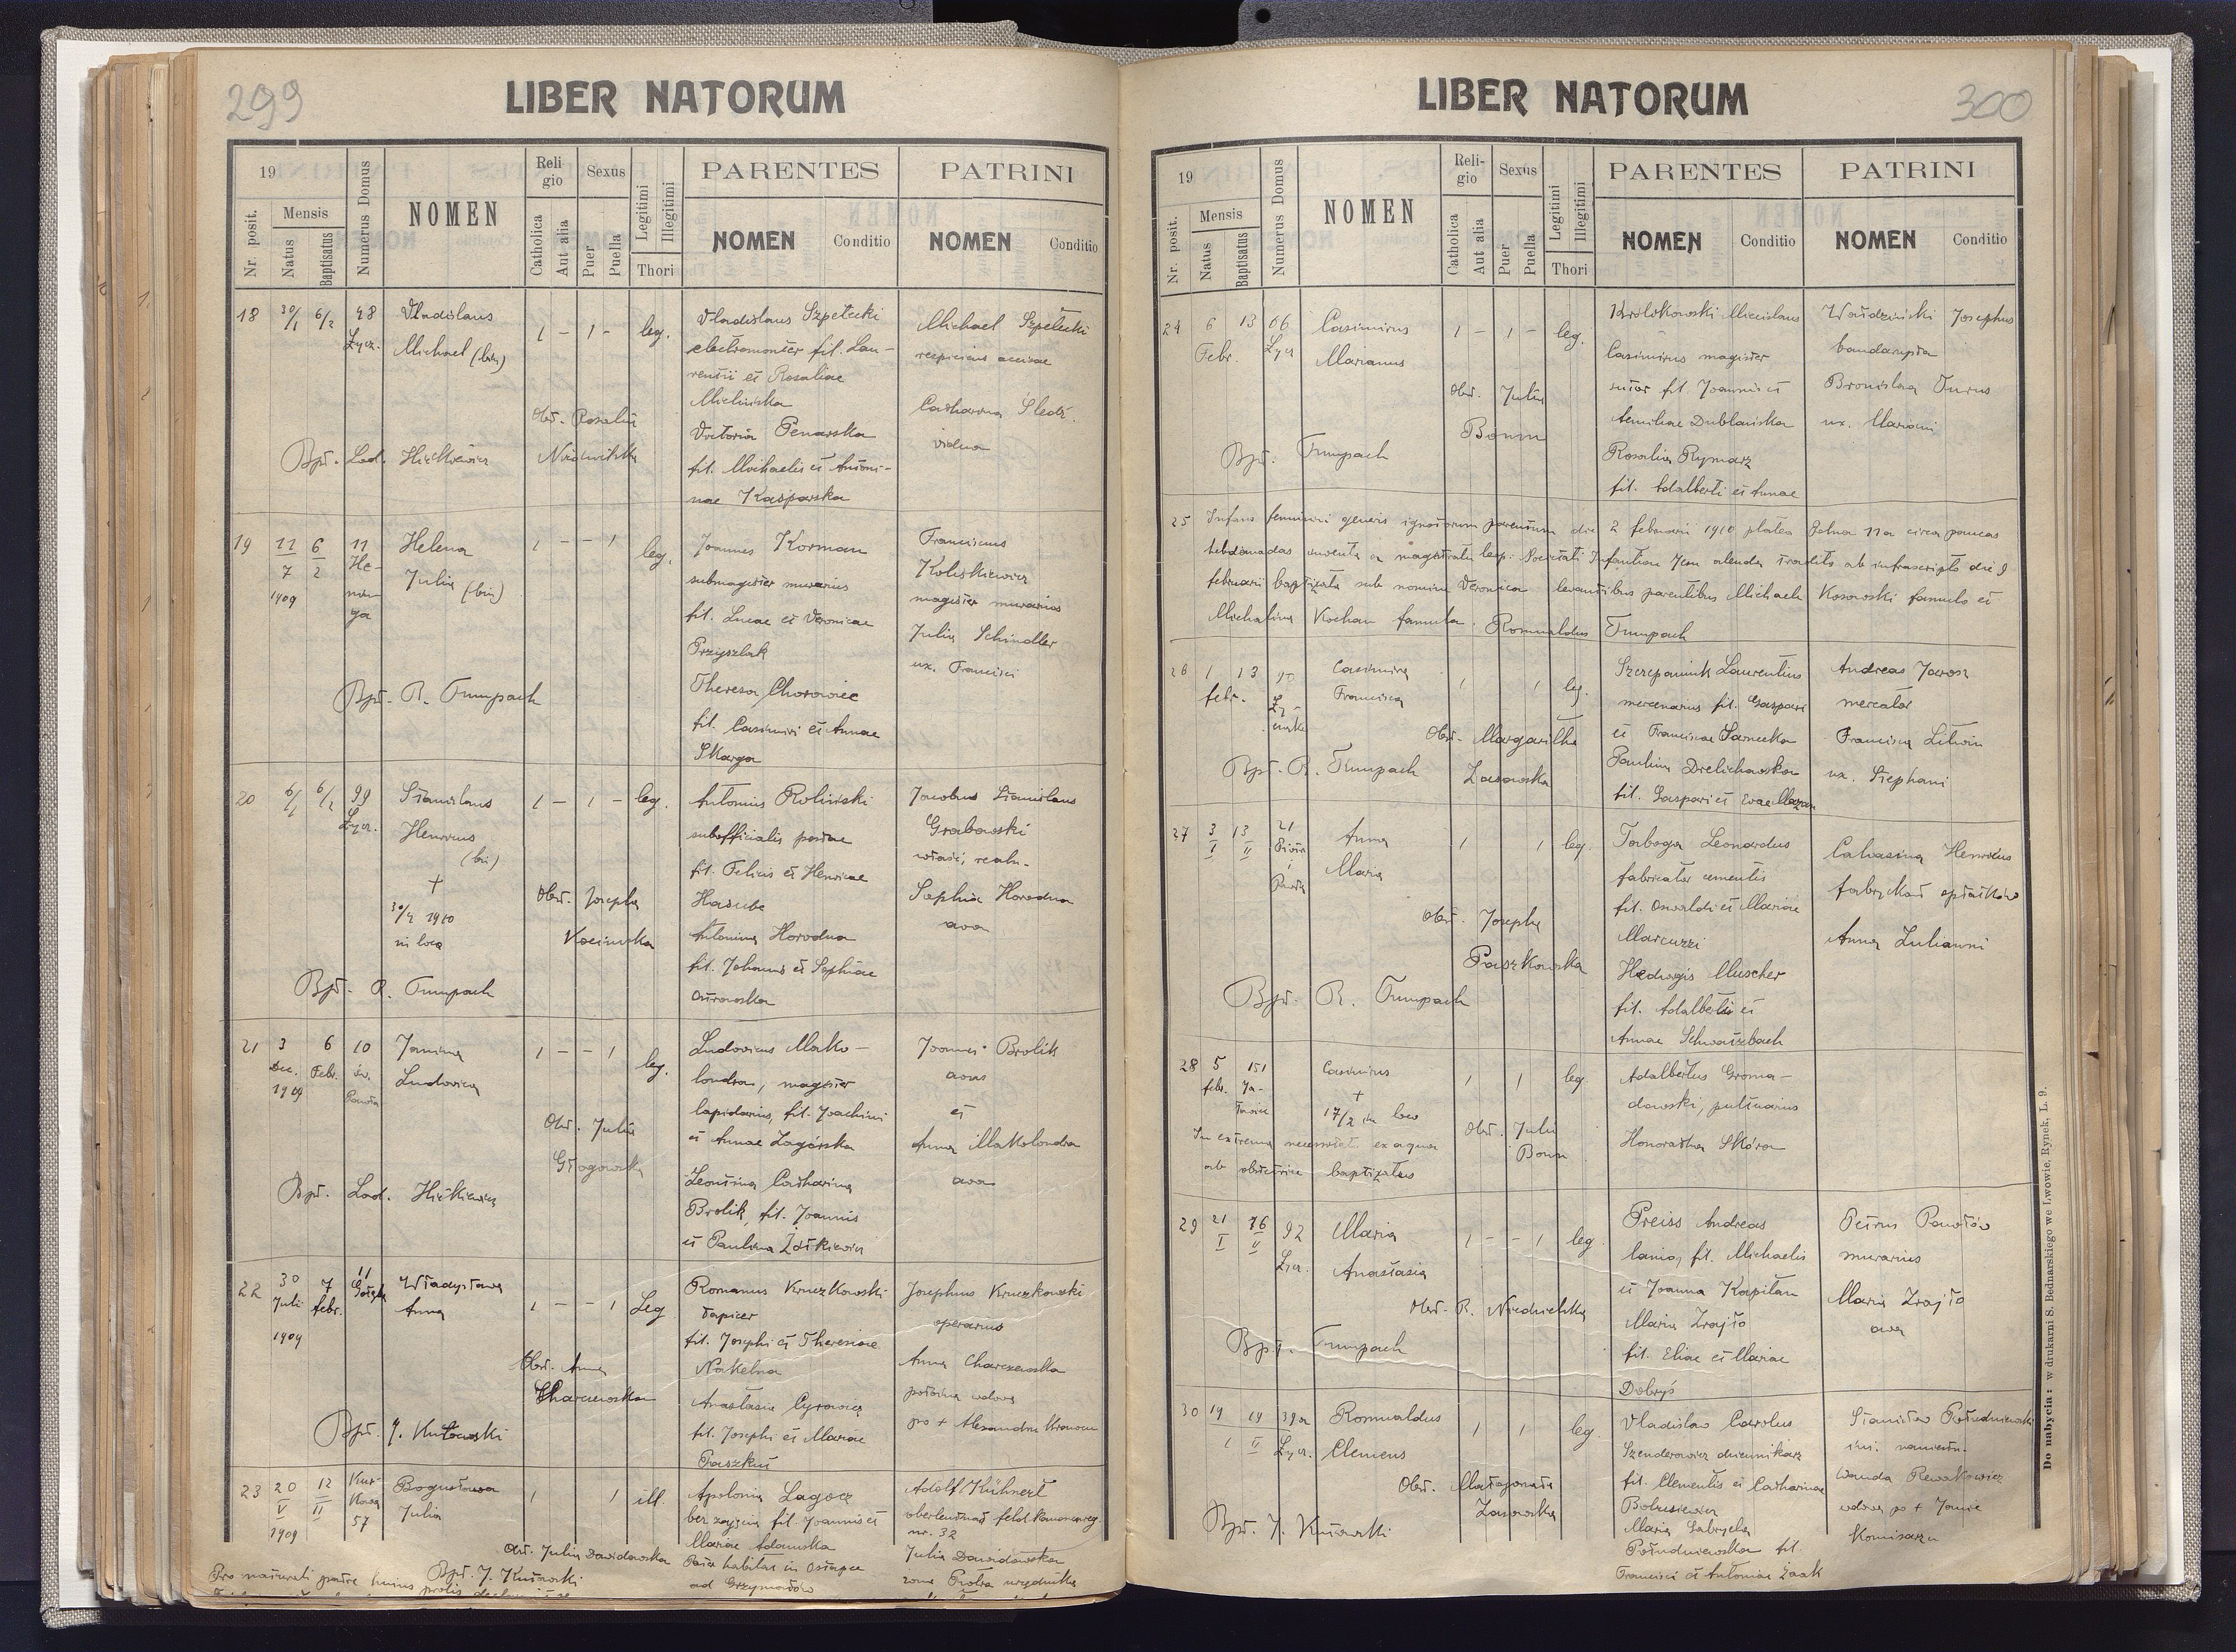 299
LIBER NATORUM
19
Nr. posit.
Mensis
Natus
Baptisatus
Numerus Domus
NOMEN
Religio
Catholica
Aut alia
Sexus
Puer
Puella
Legitimi
Illegitimi
Thori
PARENTES
NOMEN
Conditio
PATRINI
NOMEN
Conditio
18
30/1
6/2
48
Łycz.
Vladislaus
Michael (bin)
1 – 1 –
leg.
Obst. Rosalia
Bpt. Lad.
Vladislaus Szpetecki
electromonter fil. Lau-
rentii et Rosaliae
Victoria Penarska
fil. Michaelis et Antoni-
nae Kasparska
Michael Szpetecki
Catharina Sledź
vidua
19
11
7
1909
6
2
11
He-
nin-
ga
Helena
Julia (bin)
1 – – 1
leg.
Bpt. R. Trumpach
Joannes Korman
submagister murarius
fil. Lucae et Veronicae
Przyszlak
Theresa Chorowiec
fil. Casimiri et Annae
Skarga
Franciscus
magister murarius
Julia Schindler
ux. Francisci
20
6/1
6/2
99
Łycz.
Stanislaus
Henricus
(bin)
+
30/4 1910
in loco
1 – 1 –
leg.
Obst. Josepha
Bpt. R. Trumpach
Antonius Roliński
subofficialis postae
fil. Felicis et Henricae
Antonina Horodna
fil. Johannis et Sophiae
Jacobus Stanislaus
Grabowski
właść. realn.
Sophia Horodna
ava
21
3
Dec.
1909
6
Febr.
10
św.
Pawła
Janina
Ludovica
1 – – 1
leg.
Obst. Julia
Głogowska
Bpt. Lad.
Ludovicus Mako-
londra, magister
lapidarius, fil. Joachimi
et Annae Zagórska
Leontina Catharina
Brolik, fil. Joannis
et Paulina Żółkiewicz
Joannes Brolik
avus
et
Anna Makolondra
ava
22
30
Juli
1909
7
febr.
11
Gołębia
Władysława
Anna
1 – – 1
Leg
Obst. Anna
Charzewska
Bpt. J. Kutowski
Romanus Kruczkowski
tapicer
fil. Josephi et Theresiae
Nakelna
Anastasia Cyrowicz
fil. Josephi et Mariae
Paszkuś
Josephus Kruczkowski
operarius
Anna Charzewska
położna wdowa
po + Alexandrze
23
20
V
1909
12
II
Kur-
kowa
57
Bogusława
Julia
1 1
ill.
Obst. Julia Dawidowska
Bpt. J. Kutowski
Apolonia Lagocz
bez zajęcia fil. Joannis et
Mariae Adamska
Pater habitat in Ostapie
ad Grzymałów
Adolf Kühnert
oberleutnant feldkanonenreg
nr. 32
Julia Dawidowska
żona Piotra urzędnika
300
LIBER NATORUM
19
Nr. posit.
Mensis
Natus
Baptisatus
Numerus Domus
NOMEN
Religio
Catholica
Aut alia
Sexus
Puer
Puella
Legitimi
Illegitimi
Thori
PARENTES
NOMEN
Conditio
PATRINI
NOMEN
Conditio
24
6
Febr.
13
66
Łycz
Casimirus
Marianus
1 – 1 –
leg.
Obst. Julia
Bonn
Bpt. Trumpach
Królikowski Miecislaus
Casimirus magister
sutor fil. Joannis et
Aemiliae Dublańska
Rosalia Rymarz
fil. Adalberti et Annae
Josephus
bandarysta
Bronislava Turus
ux. Mariani
25 Infans feminini generis ignotorum parentum die 2 februarii 1910 platea Polna 11a circa paucas
hebdomadas inventa a magistratu leop. Societati Infantium Jesu alenda tradita ab infrascripto die 9
februarii baptizata sub nomine Veronica levantibus parentibus Michaele Kosowski famulo et
Michalina Kochan famula. Romualdus Trumpach
26
1
febr.
13
Casimira
Francisca
1 1
leg.
Obst. Margaritha
Zasowska
Bpt. R. Trumpach
Szczepaniuk Laurentius
mercenarius fil. Gaspari
et Franciscae Sarnecka
Paulina Drelichowska
fil. Gaspari et Evae Mazur
Andreas Jarosz
mercator
Francisca Litwin
ux. Stephani
27
3
I
13
II
21
Piotra
i
Pawła
Anna
Maria
1 1
leg.
Obst. Josepha
Paszkowska
Bpt. R. Trumpach
Taboga Leonardus
fabricator cementis
fil. Oswaldi et Mariae
Marcuzzi
Hedvigis Muscher
fil. Adalberti et
Annae Schwarzbach
Calvasina Henricus
fabrykant opłatków
Anna Zulianni
28
5
febr.
151
Ja-
nowska
Casimirus
+
17/2 in loco
1 1
leg
In extrema necessitat. ex aqua
ab obstetrice baptizatus
Obst. Julia
Bonn
Adalbertus Groma-
dowski,
Honoratha Skóra
29
21
I
16
II
92
Łycz.
Maria
Anastasia
1 – – 1
leg
Obst. R. Niedzielska
Bpt. Trumpach
Preiss Andreas
lanio, fil. Michaelis
et Joanna Kapitan
Maria Zrajło
fil. Eliae et Mariae
Dobryś
Petrus Pawłów
murarius
Maria Zrajło
ava
30
19
1
19
II
39a
Łycz.
Romualdus
Clemens
1 1
leg
Obst. Małagorzata
Zasowska
Bpt. J. Kutowski
Vladislav Carolus
Szenderowicz dziennikarz
fil. Clementis et Catharinae
Maria Gabryela
Południewska fil.
Francisci et Antoniae Żaak
Stanisław Południewski
inż. namiestn.
Wanda Rewakowicz
wdowa po + Janie
komisarzu
Do nabycia: w drukarni S. Bednarskiego we Lwowie, Rynek, L. 9.